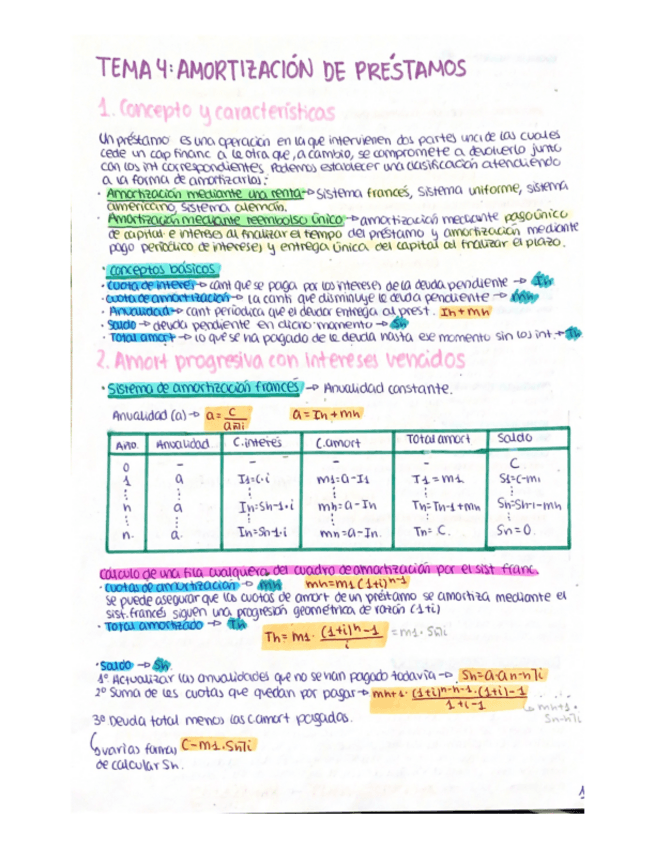 TEMA 4: AMORTIZACIÓN DE PRÉSTAMOS
1. Concepto y características
Un préstamo es una operación en la que intervienen dos partes una de las cuales
cede un cap financ a la otra que, a cambio, se compromete a devolverlo junto
con los int correspondientes. Podemos establecer una clasificación atendiendo
a la forma de amortizarlos:
· Amortización mediante una renta → Sistema francés, sistema uniforme, sistema
americano, sistema alemán.
· Amortización mediante reembolso único → amortización mediante pago único
de capital e intereses al finalizar el tiempo del préstamo y amortización mediante
pago periódico de intereses y entrega única del capital al finalizar el plazo.
· Conceptos básicos
· Cuota de interés → cant que se paga por los intereses de la deuda pendiente → Ih
· Cuota de amortización → la canti que disminuye la deuda pendiente → mh
· Anualidad → cant periódica que el deudor entrega al prest. Ih + mh
· Saldo → deuda pendiente en dicho momento → Sh
· Total amort → lo que se ha pagado de la deuda hasta ese momento sin los int. → Th
2. Amort progresiva con intereses vencidos
· Sistema de amortización francés → Anualidad constante.
Anualidad (a) → a = C / an̅|i a = Ih + mh
Año. Anualidad C.interés C.amort Total amort Saldo
0 - - - - C
1 a I1=C·i m1=a-I1 T1=m1 S1=C-m1
h a Ih=Sh-1·i mh=a-Ih Th=Th-1+mh Sh=Sh-1-mh
n. a. In=Sn-1·i mn=a-In. Tn=C. Sn=0.
Cálculo de una fila cualquiera del cuadro de amortización por el sist franc.
· Cuotas de amortización → mh mh=m1(1+i)^h-1
Se puede asegurar que las cuotas de amort de un préstamo se amortiza mediante el
sist. francés siguen una progresión geométrica de razón (1+i)
· Total amortizado → Th
Th = m1 · (1+i)^h - 1 / i = m1 · Sh̅|i
· Saldo → Sh
1º Actualizar las anualidades que no se han pagado todavía → Sh=a·an-h̅|i
2º Suma de las cuotas que quedan por pagar → mh+1 · (1+i)^n-h-1 · (1+i)-1 / 1+i-1
↳ mh+1 · Sn-h̅|i
3º Deuda total menos las c.amort pagadas.
↳ varias formas C-m1·Sh̅|i
de calcular Sh.
1